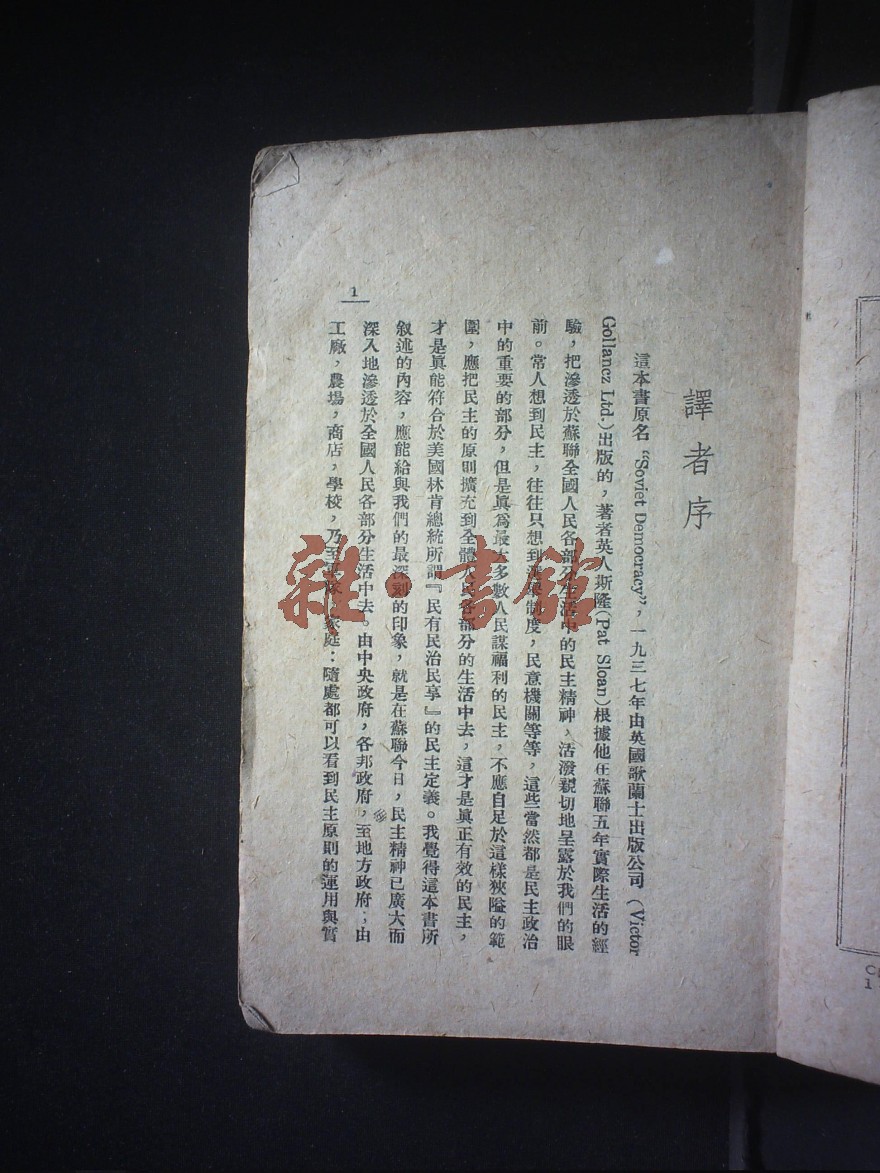 譯者序
這本書原名“Soviet Democracy”，一九三七年由英國歌蘭士出版公司（Victor
Gollancz Ltd.）出版的，著者英人斯隆(Pat Sloan)根據他在蘇聯五年實際生活的經
驗，把滲透於蘇聯全國人民各部分生活中的民主精神，活潑親切地呈露於我們的眼
前。常人想到民主，往往只想到選舉制度，民意機關等等，這些當然都是民主政治
中的重要的部分，但是眞爲最大多數人民謀福利的民主，不應自足於這樣狹隘的範
圍，應把民主的原則擴充到全體人民各部分的生活中去，這才是眞正有效的民主，
才是眞能符合於美國林肯總統所謂『民有民治民享』的民主定義。我覺得這本書所
敍述的內容，應能給與我們的最深刻的印象，就是在蘇聯今日，民主精神已廣大而
深入地滲透於全國人民各部分生活中去。由中央政府，各邦政府，至地方政府；由
工廠，農場，商店，學校，乃至軍隊，家庭：隨處都可以看到民主原則的運用與實
1
雜·書館